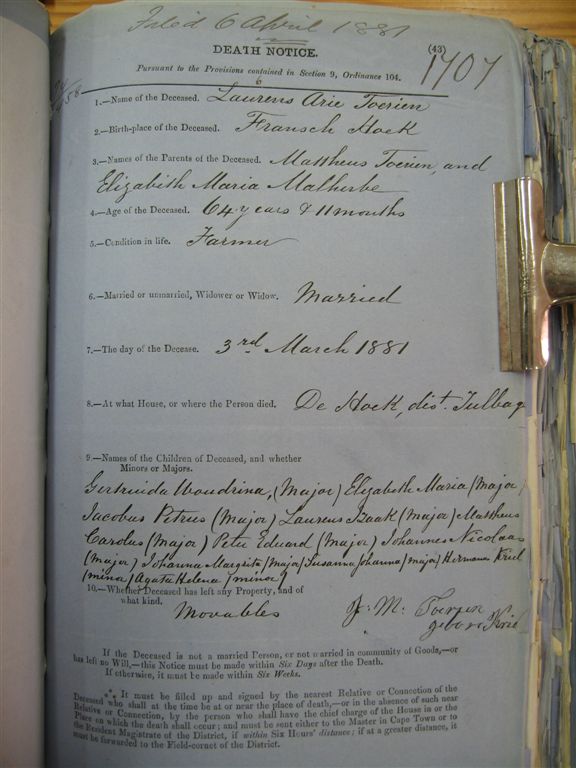 Filed 6 April 1881
DEATH NOTICE.
(43)
1707
Pursuant to the Provisions contained in Section 9, Ordinance 104.
6
1.—Name of the Deceased. Laurens Arie Toerien
2.—Birth-place of the Deceased. Fransch Hoek
3.—Names of the Parents of the Deceased. Mattheus Toerien, and
Elizabeth Maria Malherbe
4.—Age of the Deceased. 64 years & 11 months
5.—Condition in life. Farmer
6.—Married or unmarried, Widower or Widow. Married
7.—The day of the Decease. 3rd March 1881
8.—At what House, or where the Person died. De Hoek, dist. Tulbag
9.—Names of the Children of Deceased, and whether
Minors or Majors.
Gertruida Woudrina, (Major) Elizabeth Maria (Major)
Jacobus Petrus (Major) Laurens Izaak (Major) Mattheus
Carolus (Major) Peter Eduard (Major) Johannes Nicolaas
(Major) Johanna Margrita (Major) Susanna Johanna (major) Hermanus Kriel
(minor) Agatha Helena (minor)
10.—Whether Deceased has left any Property, and of
what kind.
Movables
J. M. Toerien
geboren Kriel
If the Deceased is not a married Person, or not married in community of Goods,—or
has left no Will,—this Notice must be made within Six Days after the Death.
If otherwise, it must be made within Six Weeks.
⁂ It must be filled up and signed by the nearest Relative or Connection of the
Deceased who shall at the time be at or near the place of death,—or in the absence of such near
Relative or Connection, by the person who shall have the chief charge of the House in or the
Place on which the death shall occur; and must be sent either to the Master in Cape Town or to
the Resident Magistrate of the District, if within Six Hours' distance; if at a greater distance, it
must be forwarded to the Field-cornet of the District.